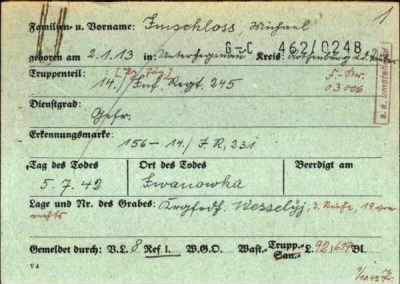 1
Familien- u. Vorname: Imschloss Michael
G=C 462/0248
geboren am 2.1.13 in: Kreis: Rothenburg
Truppenteil: 14./Inf. Regt. 245
03006
Dienstgrad:
Gefr.
Erkennungsmarke:
156 – 14./ J.R. 231
Tag des Todes Ort des Todes Beerdigt am
5.7.42 Iwanowka
Lage und Nr. des Grabes: Krgfrdh. Wesselyj, 3. Reihe, 19. von
rechts
Gemeldet durch: V.L. 8 Ref. I. W.G.O. Wast.- Trupp.- San.- L. 92,619 Bl.
V 4